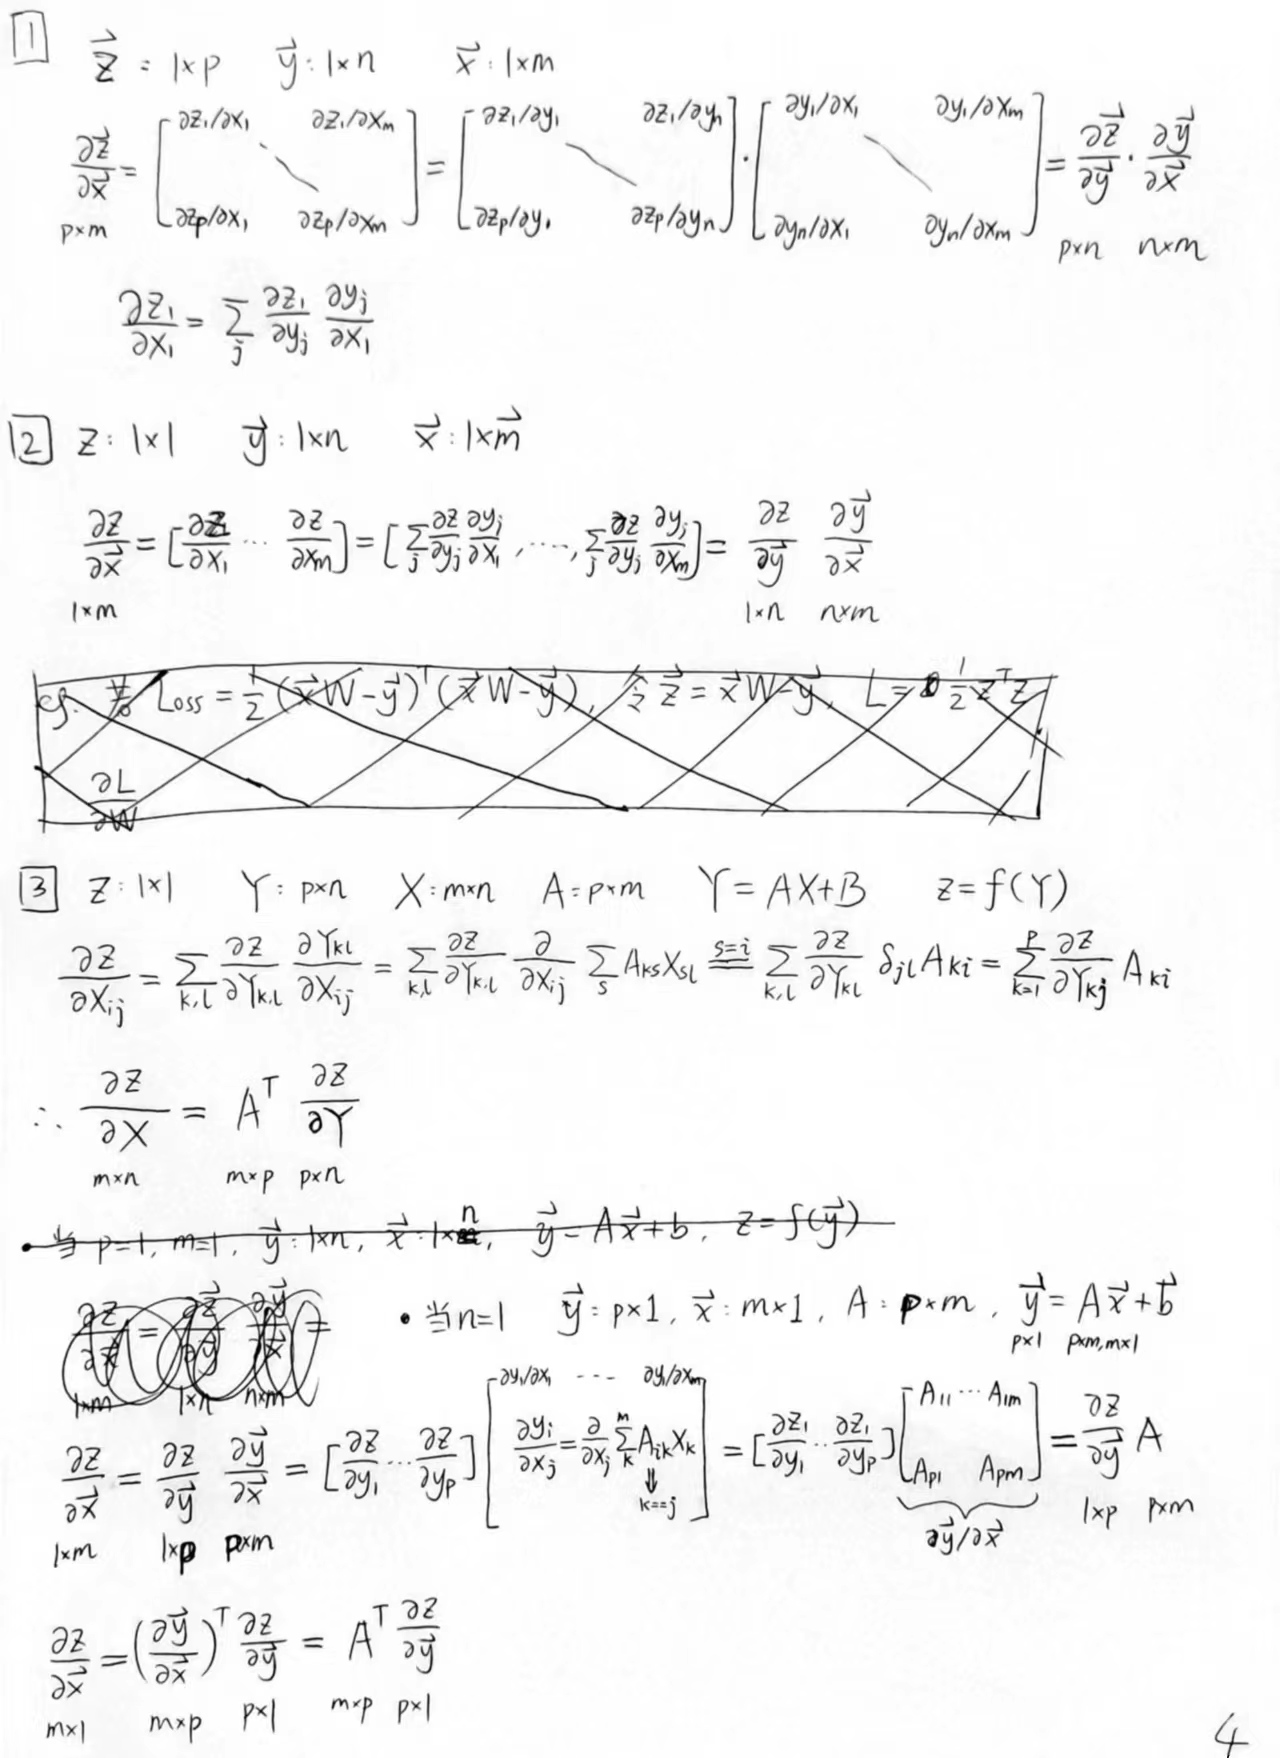 1 z⃗ = 1×p y⃗ : 1×n x⃗ : 1×m
∂z⃗/∂x⃗ = [∂z₁/∂x₁ ∂z₁/∂xₘ ∂zₚ/∂x₁ ∂zₚ/∂xₘ] = [∂z₁/∂y₁ ∂z₁/∂yₙ ∂zₚ/∂y₁ ∂zₚ/∂yₙ] · [∂y₁/∂x₁ ∂y₁/∂xₘ ∂yₙ/∂x₁ ∂yₙ/∂xₘ] = ∂z⃗/∂y⃗ · ∂y⃗/∂x⃗
p×m p×n n×m
∂z₁/∂x₁ = Σⱼ ∂z₁/∂yⱼ ∂yⱼ/∂x₁
2 z: 1×1 y⃗ : 1×n x⃗ : 1×m⃗
∂z/∂x⃗ = [∂z/∂x₁ ··· ∂z/∂xₘ] = [Σⱼ ∂z/∂yⱼ ∂yⱼ/∂x₁ , ····, Σⱼ ∂z/∂yⱼ ∂yⱼ/∂xₘ] = ∂z/∂y⃗ ∂y⃗/∂x⃗
1×m 1×n n×m
eg. Loss = 1/2 (x⃗W-y⃗)ᵀ(x⃗W-y⃗), z⃗ = x⃗W-y⃗, L = 1/2 zᵀz
∂L/∂W
3 z: 1×1 Y: p×n X: m×n A: p×m Y = AX+B z = f(Y)
∂z/∂Xᵢⱼ = Σ_{k,l} ∂z/∂Y_{k,l} ∂Y_{kl}/∂Xᵢⱼ = Σ_{k,l} ∂z/∂Y_{k,l} ∂/∂Xᵢⱼ Σₛ A_{ks}X_{sl} =(s=i)= Σ_{k,l} ∂z/∂Y_{kl} δ_{jl}A_{ki} = Σ_{k=1}^{p} ∂z/∂Y_{kj} A_{ki}
∴ ∂z/∂X = Aᵀ ∂z/∂Y
m×n m×p p×n
• 当 p=1, m=1, y⃗ : 1×n, x⃗ : 1×n, y⃗ = Ax⃗+b, z = f(y⃗)
∂z/∂x⃗ = ∂z⃗/∂y⃗ ∂y⃗/∂x⃗ =
1×m 1×n n×m
• 当n=1 y⃗ : p×1, x⃗ : m×1, A : p×m, y⃗ = Ax⃗+b⃗
p×1 p×m,m×1
∂z/∂x⃗ = ∂z/∂y⃗ ∂y⃗/∂x⃗ = [∂z/∂y₁ ··· ∂z/∂yₚ] [∂y₁/∂x₁ --- ∂y₁/∂xₘ ∂yᵢ/∂xⱼ = ∂/∂xⱼ Σₖᵐ A_{ik}Xₖ ⇓ k==j] = [∂z₁/∂y₁ ·· ∂z₁/∂yₚ] [A₁₁ ··· A₁ₘ Aₚ₁ Aₚₘ] = ∂z/∂y⃗ A
1×m 1×p p×m ∂y⃗/∂x⃗ 1×p p×m
∂z/∂x⃗ = (∂y⃗/∂x⃗)ᵀ ∂z/∂y⃗ = Aᵀ ∂z/∂y⃗
m×1 m×p p×1 m×p p×1
4